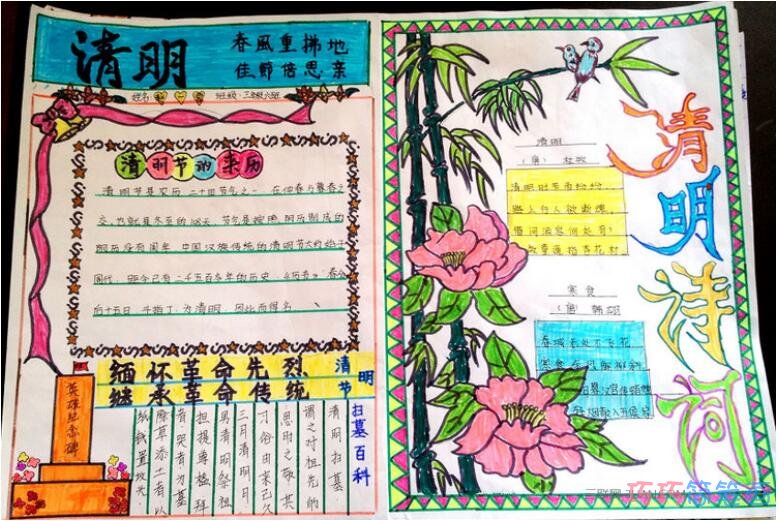 清明
春風重拂地
佳節倍思亲
姓名: 班级:三年级六班
清明节的来历
清明节是农历二十四节气之一 在仲春与暮春之
交,也就是冬至后108天 节气是按照阳历制成的
阴历没有闰年 中国汉族传统的清明节大约始于
周代,距今已有二千五百多年的历史
后十五日 斗指丁,为清明,因此而得名
缅怀革命先烈
继承革命传统
清明节
扫墓百科
英雄纪念碑
清明扫墓
谓之对祖先的
思时之敬其
习俗由来已久
三月清明日
男清明祭祖
担提尊榼拜
者哭者为墓
除草添土者以
纸钱置坟头
清明诗词
清明
(唐) 杜牧
清明时节雨纷纷
路上行人欲断魂
借问酒家何处有
牧童遥指杏花村
寒食
(唐) 韩翃
春城无处不飞花
寒食东风御柳斜
日暮汉宫传蜡烛
轻烟散入五侯家
巧巧简笔画